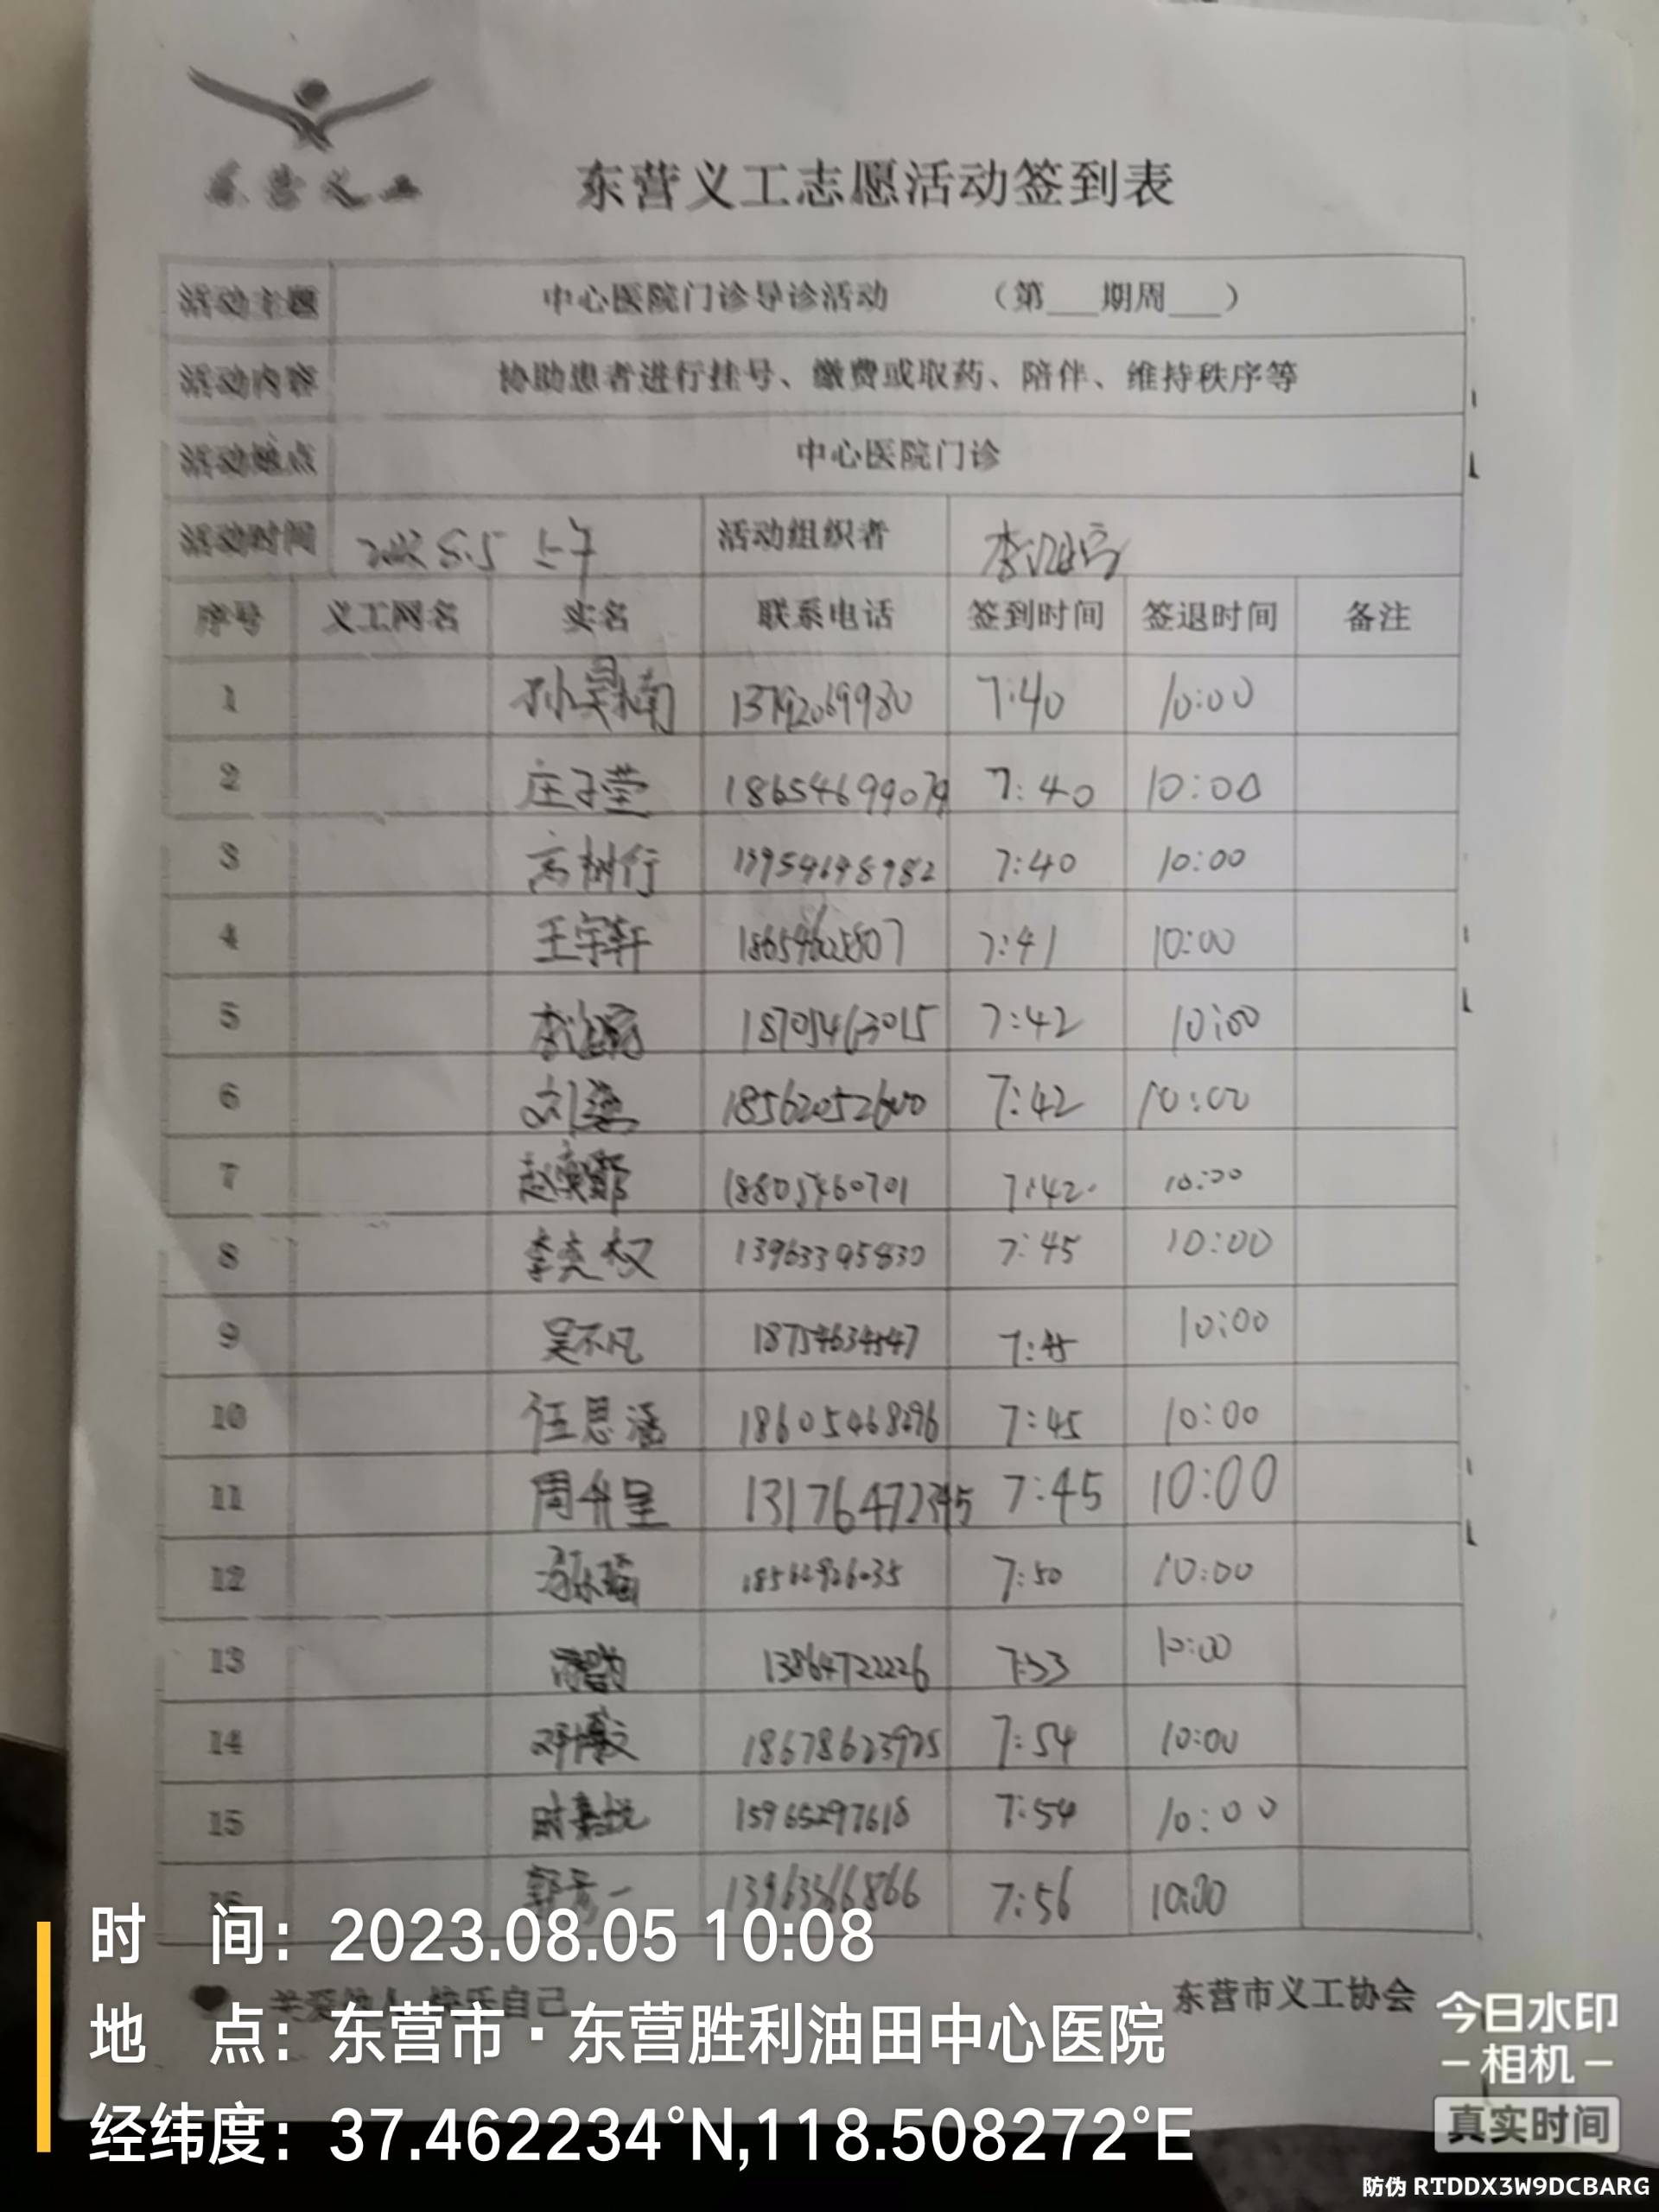 东营义工
东营义工志愿活动签到表
活动主题 中心医院门诊导诊活动 （第___期周___）
活动内容 协助患者进行挂号、缴费或取药、陪伴、维持秩序等
活动地点 中心医院门诊
活动时间 上午 活动组织者
序号 义工网名 实名 联系电话 签到时间 签退时间 备注
1 孙昊楠 13792069980 7:40 10:00
2 庄子莹 18654699079 7:40 10:00
3 高树行 7:40 10:00
4 王宇轩 18654622807 7:41 10:00
5 18705463015 7:42 10:00
6 18562052600 7:42 10:00
7 18805460701 7:42 10:00
8 李奕权 13963395830 7:45 10:00
9 吴不凡 18754634547 7:45 10:00
10 任思涵 18605468296 7:45 10:00
11 13176472345 7:45 10:00
12 7:50 10:00
13 13864722226 7:53 10:00
14 邓博文 18678623925 7:54 10:00
15 时嘉悦 15965297618 7:54 10:00
16 13963366866 7:56 10:00
自己 东营市义工协会
时 间：2023.08.05 10:08
地 点：东营市·东营胜利油田中心医院
经纬度：37.462234°N,118.508272°E
今日水印
-相机-
真实时间
防伪 RTDDX3W9DCBARG